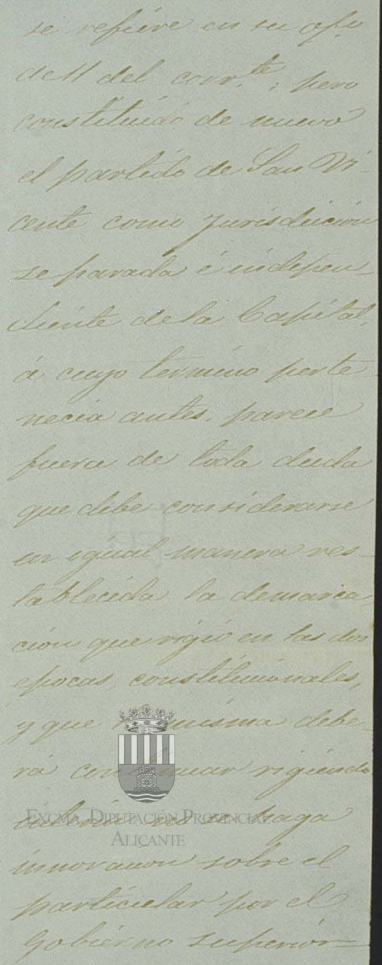 se refiere en su ofo
de 11 del corrte, pero
constituido de nuevo
el partido de San Vi-
cente como jurisdiccion
separada é indepen-
diente de la Capital,
á cuyo termino perte-
necia antes, parece
fuera de toda duda
que debe considerarse
en igual manera res-
tablecida la demarca-
ción que rigió en las dos
epocas constitucionales,
y que misma debe-
rá continuar rigiendo
haga
innovacion sobre el
particular por el
Gobierno superior
EXCMA. DIPUTACIÓN PROVINCIAL
ALICANTE